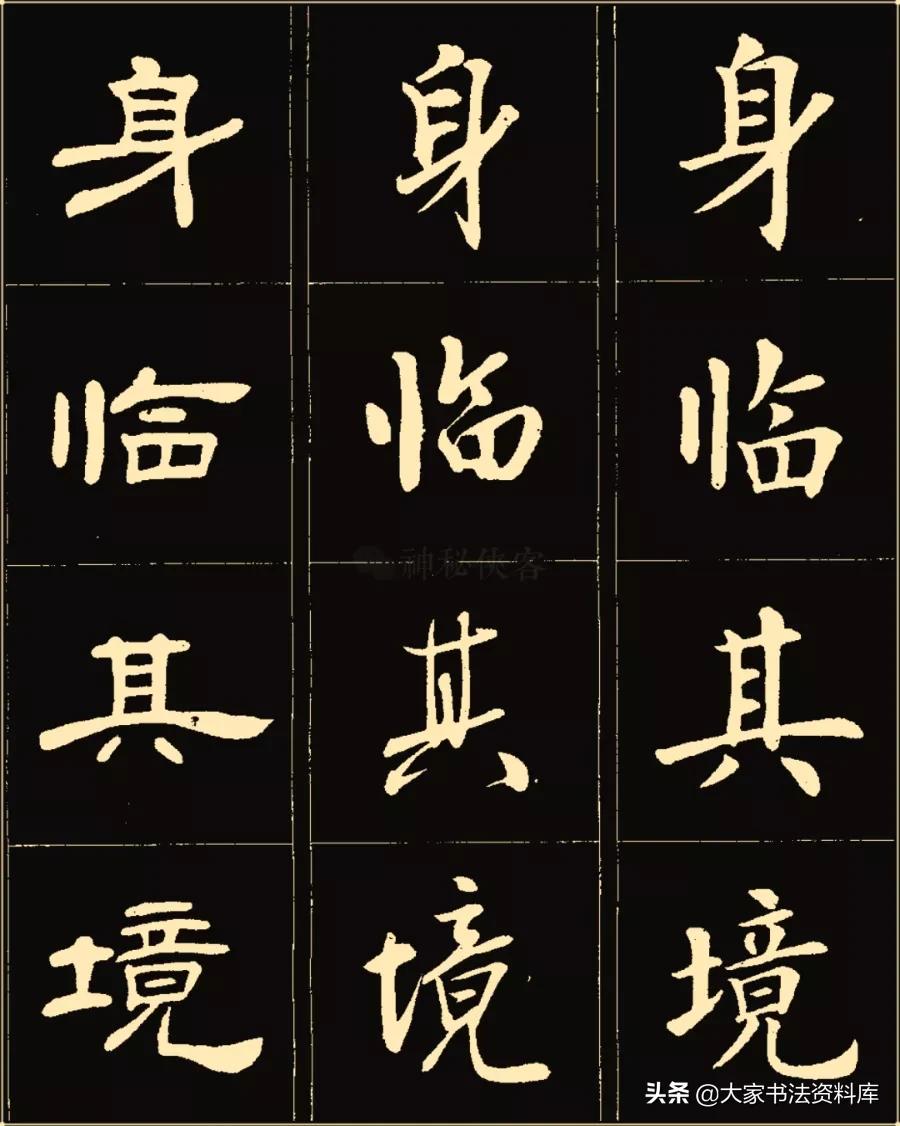 身 身 身
临 临 临
神秘侠客
其 其 其
境 境 境
头条 @大家书法资料库